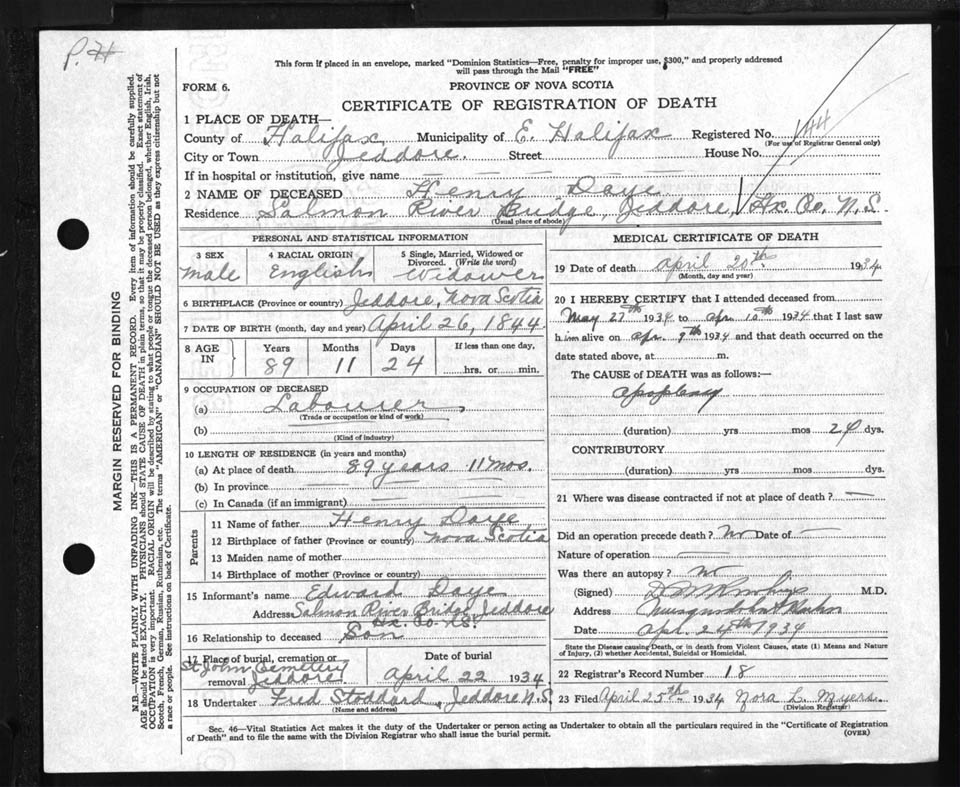 P. H
This form if placed in an envelope, marked "Dominion Statistics—Free, penalty for improper use, $300," and properly addressed
will pass through the Mail "FREE"
FORM 6.
PROVINCE OF NOVA SCOTIA
CERTIFICATE OF REGISTRATION OF DEATH
1 PLACE OF DEATH—
County of Halifax Municipality of E. Halifax Registered No. 144
(For use of Registrar General only)
City or Town Jeddore. Street House No.
If in hospital or institution, give name — — — — —
2 NAME OF DECEASED Henry Daye
Residence Salmon River Bridge, Jeddore, Hx. Co. N.S.
(Usual place of abode)
PERSONAL AND STATISTICAL INFORMATION
3 SEX
male
4 RACIAL ORIGIN
English
5 Single, Married, Widowed or
Divorced. (Write the word)
Widower
6 BIRTHPLACE (Province or country) Jeddore, Nova Scotia
7 DATE OF BIRTH (month, day and year) April 26, 1844.
8 AGE
IN
Years Months Days If less than one day,
89 11 24 hrs. or min.
9 OCCUPATION OF DECEASED
(a) Labourer,
(Trade or occupation or kind of work)
(b)
(Kind of industry)
10 LENGTH OF RESIDENCE (in years and months)
(a) At place of death 89 years 11 mos.
(b) In province
(c) In Canada (if an immigrant)
Parents
11 Name of father Henry Daye
12 Birthplace of father (Province or country) Nova Scotia
13 Maiden name of mother
14 Birthplace of mother (Province or country)
15 Informant's name Edward Daye
Address Salmon River Bridge, Jeddore
Hx. Co. N.S.
16 Relationship to deceased Son
17 Place of burial, cremation or
removal St John Cemetery
Jeddore
Date of burial
April 22 1934
18 Undertaker Fred Stoddard, Jeddore N.S.
(Name and address)
MEDICAL CERTIFICATE OF DEATH
19 Date of death April 20th 1934
(Month, day and year)
20 I HEREBY CERTIFY that I attended deceased from
1934 to Apr. 1934 that I last saw
him alive on Apr. 9th 1934 and that death occurred on the
date stated above, at m.
The CAUSE OF DEATH was as follows:—
Apoplexy
(duration) yrs mos dys.
CONTRIBUTORY
(duration) yrs mos dys.
21 Where was disease contracted if not at place of death? —
Did an operation precede death? No Date of —
Nature of operation —
Was there an autopsy? No
(Signed) M.D.
Address
Date Apr. 24th 1934
State the Disease causing Death, or in death from Violent Causes, state (1) Means and Nature
of Injury, (2) whether Accidental, Suicidal or Homicidal.
22 Registrar's Record Number 18
23 Filed April 25th 1934 Nora L. Myers.
(Division Registrar)
Sec. 46—Vital Statistics Act makes it the duty of the Undertaker or person acting as Undertaker to obtain all the particulars required in the "Certificate of Registration
of Death" and to file the same with the Division Registrar who shall issue the burial permit.
(OVER)
MARGIN RESERVED FOR BINDING
N.B.—WRITE PLAINLY WITH UNFADING INK—THIS IS A PERMANENT RECORD. Every item of information should be carefully supplied.
AGE should be stated EXACTLY. PHYSICIANS should STATE CAUSE OF DEATH in plain terms, so that it may be properly classified. Exact statement of
OCCUPATION is very important. RACIAL ORIGIN will be described by stating to what people or tongue the deceased person belonged, whether English, Irish,
Scotch, French, German, Russian, Ruthenian, etc. The terms "AMERICAN" or "CANADIAN" SHOULD NOT BE USED as they express citizenship but not
a race or people. See instructions on back of Certificate.